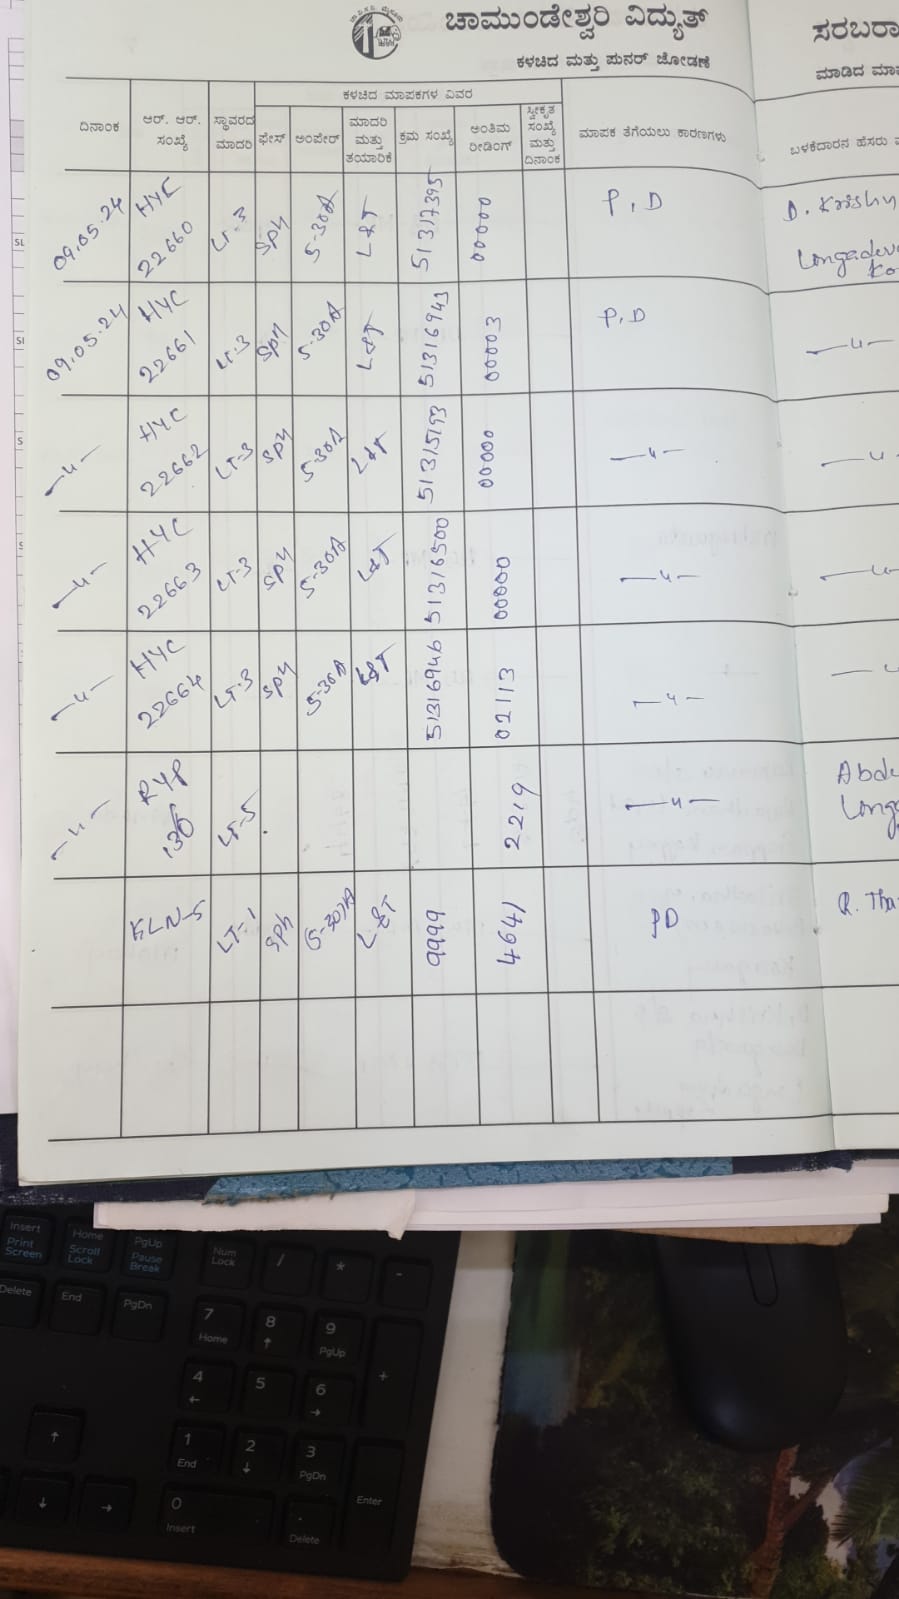 ಚಾಮುಂಡೇಶ್ವರಿ ವಿದ್ಯುತ್ ಸರಬರಾ
ಕಳಚಿದ ಮತ್ತು ಪುನರ್ ಜೋಡಣೆ ಮಾಡಿದ ಮಾಪ
ಕಳಚಿದ ಮಾಪಕಗಳ ವಿವರ
ದಿನಾಂಕ ಆರ್. ಆರ್. ಸಂಖ್ಯೆ ಸ್ಥಾವರದ ಮಾದರಿ ಫೇಸ್ ಅಂಪೇರ್ ಮಾದರಿ ಮತ್ತು ತಯಾರಿಕೆ ಕ್ರಮ ಸಂಖ್ಯೆ ಅಂತಿಮ ರೀಡಿಂಗ್ ಸ್ವೀಕೃತ ಸಂಖ್ಯೆ ಮತ್ತು ದಿನಾಂಕ ಮಾಪಕ ತೆಗೆಯಲು ಕಾರಣಗಳು ಬಳಕೆದಾರನ ಹೆಸರು
09.05.24 HYC 22660 LT-3 SPH 5-30A L&T 51317395 00000 P.D D. Krishn
09.05.24 HYC 22661 LT-3 SPH 5-30A L&T 51316943 00003 P.D —"—
—"— HYC 22662 LT-3 SPH 5-30A L&T 51315193 00000 —"— —"—
—"— HYC 22663 LT-3 SPH 5-30A L&T 51316500 00000 —"— —"—
—"— HYC 22664 LT-3 SPH 5-30A L&T 51316946 02113 —"— —"—
—"— RYP LT-5 2219 —"— Abdu
KLN-5 LT-1 SPH 5-30A L&T 9999 4641 PD R. Tha
Insert Print Screen Home Scroll Lock PgUp Pause Break Num Lock / * -
Delete End PgDn 7 Home 8 ↑ 9 PgUp +
4 ← 5 6 →
↑ 1 End 2 ↓ 3 PgDn Enter
↓ → 0 Insert . Delete